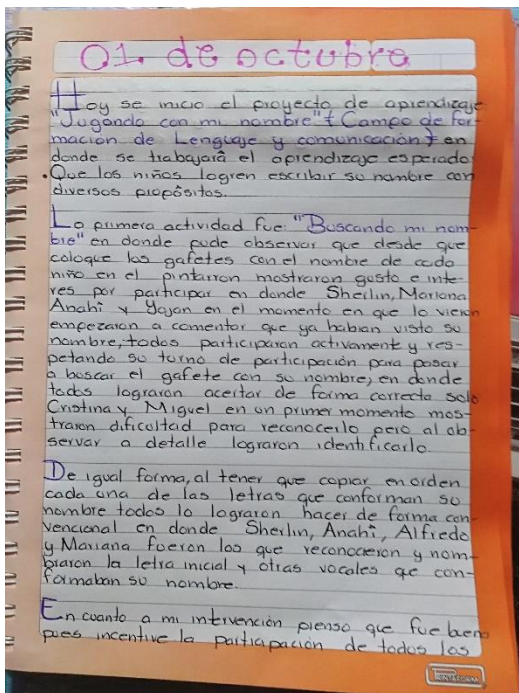 01. de octubre
Hoy se inicio el proyecto de aprendizaje
"Jugando con mi nombre" { Campo de for-
mación de Lenguaje y comunicación } en
donde se trabajará el aprendizaje esperado:
• Que los niños logren escribir su nombre con
diversos propósitos.
La primera actividad fue: "Buscando mi nom-
bre" en donde pude observar que desde que
coloque los gafetes con el nombre de cada
niño en el pintarron mostraron gusto e inte-
res por participar en donde Sherlin, Mariana
Anahi y Yojan en el momento en que lo vieron
empezaron a comentar que ya habian visto su
nombre, todos participaron activament y res-
petando su turno de participación para pasar
a buscar el gafete con su nombre, en donde
todos lograron acertar de forma correcta solo
Cristina y Miguel en un primer momento mos-
traron dificultad para reconocerlo pero al ob-
servar a detalle lograron identificarlo.
De igual forma, al tener que copiar en orden
cada una de las letras que conforman su
nombre todos lo lograron hacer de forma con-
vencional en donde Sherlin, Anahi, Alfredo
y Mariana fueron los que reconocieron y nom-
braron la letra inicial y otras vocales qe con-
formaban su nombre.
En cuanto a mi intervención pienso que fue buena
pues incentive la participación de todos los